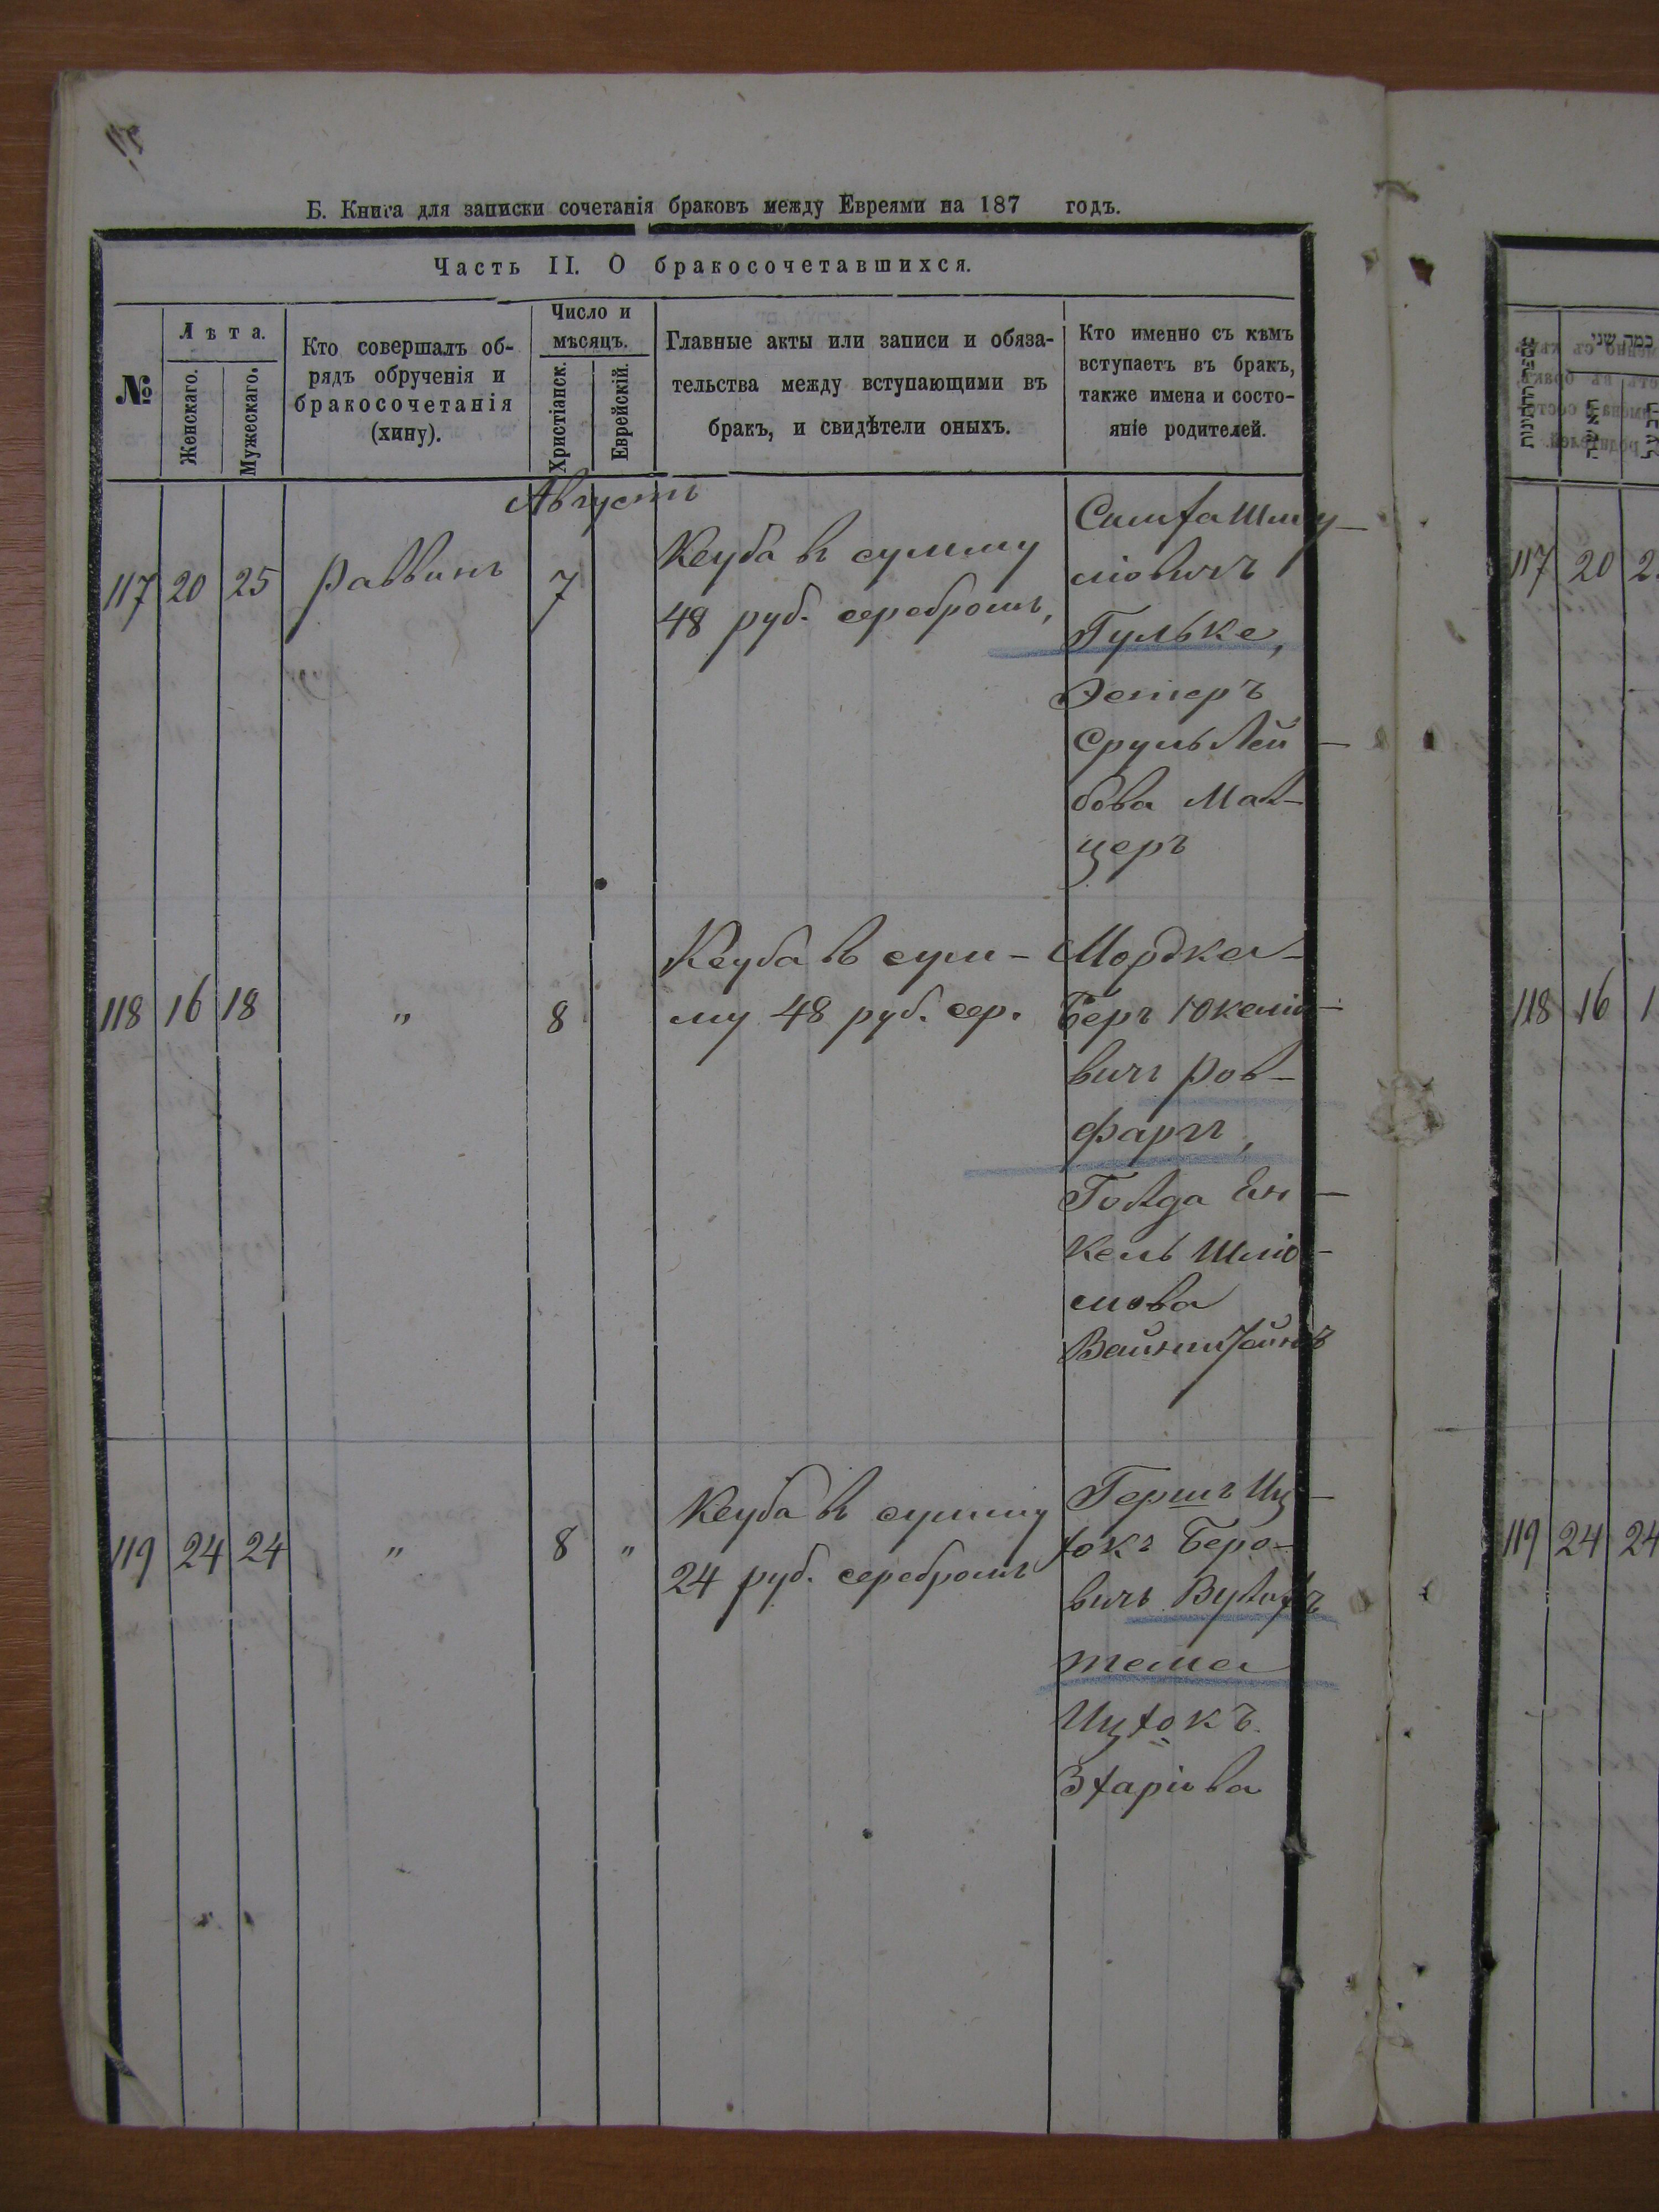 Б. Книга для записки сочетанія браковъ между Евреями на 187 годъ.
Часть II. О бракосочетавшихся.
№
Лѣта.
Женскаго.
Мужескаго.
Кто совершалъ об-
рядъ обрученія и
бракосочетанія
(хину).
Число и
мѣсяцъ.
Христіанск.
Еврейскій.
Главные акты или записи и обяза-
тельства между вступающими въ
бракъ, и свидѣтели оныхъ.
Кто именно съ кѣмъ
вступаетъ въ бракъ,
также имена и состо-
яніе родителей.
Августъ
117 20 25 Раввинъ 7
Кеуба въ сумму
48 руб. серебромъ,
Симха Шму-
ліовичъ
Гульке,
Эстеръ
Сруль Лей-
бова Мал-
церъ
118 16 18 " 8
Кеуба въ сум-
му 48 руб. сер.
Мордка
Беръ Юкеліо-
вичъ Ров-
фаргъ,
Голда Ен-
кель Шліо-
мова
Вайнштейнъ
119 24 24 " 8 "
Кеуба въ сумму
24 руб. серебромъ
Гершъ Иц-
хокъ Беро-
вичъ
Ицхокъ
Зхаріова
כמה שני
117 20 2
118 16 1
119 24 24